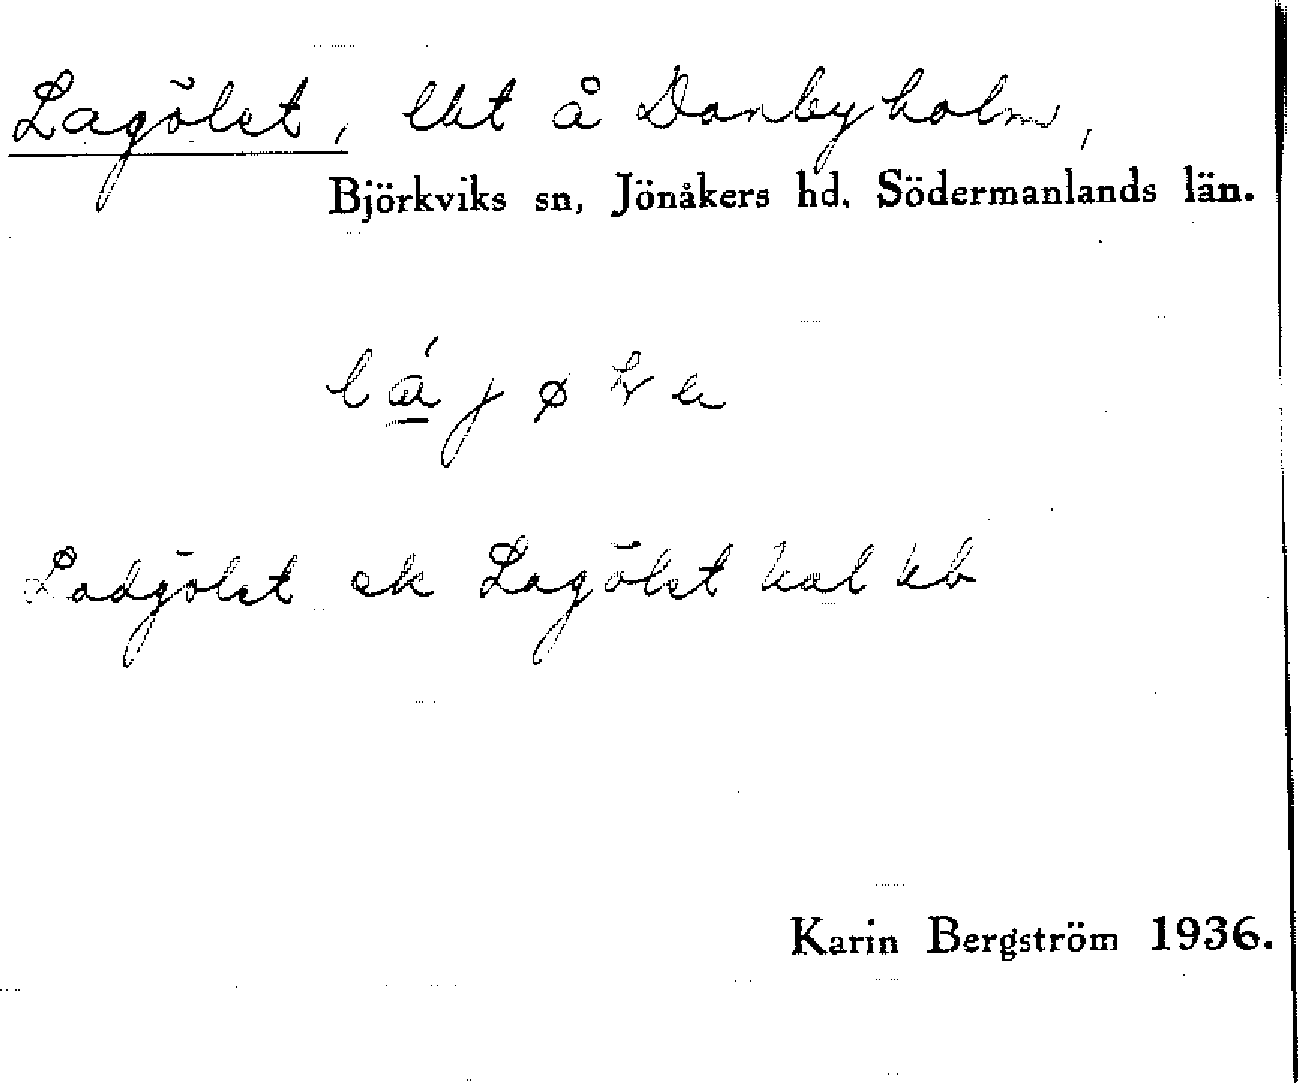 Lagölet, lht å Danbyholm,
Björkviks sn, Jönåkers hd. Södermanlands län.
Ladgölet ek Lagölet
Karin Bergström 1936.